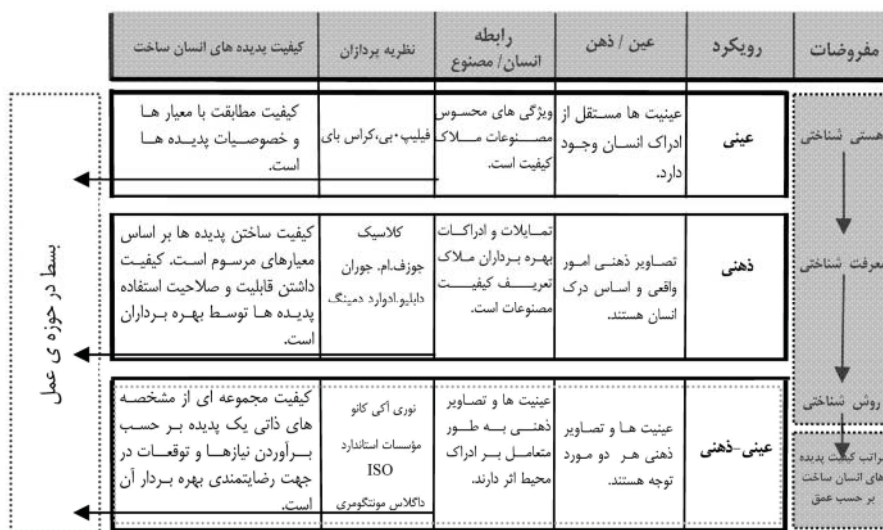 مفروضات
رویکرد
عین / ذهن
رابطه
انسان/ مصنوع
نظریه پردازان
کیفیت پدیده های انسان ساخت
هستی شناختی
عینی
عینیت ها مستقل از
ادراک انسان وجود
دارد.
ویژگی های محسوس
مصنوعات ملاک
کیفیت است.
فیلیپ.بی،کراس بای
کیفیت مطابقت با معیار ها
و خصوصیات پدیده ها
است.
معرفت شناختی
ذهنی
تصاویر ذهنی امور
واقعی و اساس درک
انسان هستند.
تمایلات و ادراکات
بهره برداران ملاک
تعریف کیفیت
مصنوعات است.
کلاسیک
جوزف.ام. جوران
دابلیو.ادوارد دمینگ
کیفیت ساختن پدیده ها بر اساس
معیارهای مرسوم است. کیفیت
داشتن قابلیت و صلاحیت استفاده
پدیده ها توسط بهره برداران
است.
روش شناختی
عینی-ذهنی
عینیت ها و تصاویر
ذهنی هر دو مورد
توجه هستند.
عینیت ها و تصاویر
ذهنی به طور
متعامل بر ادراک
محیط اثر دارند.
نوری آکی کانو
مؤسسات استاندارد
ISO
داگلاس مونتگومری
کیفیت مجموعه ای از مشخصه
های ذاتی یک پدیده بر حسب
برآوردن نیازها و توقعات در
جهت رضایتمندی بهره بردار آن
است.
مراتب کیفیت پدیده
های انسان ساخت
بر حسب عمق
بسط در حوزه ی عمل